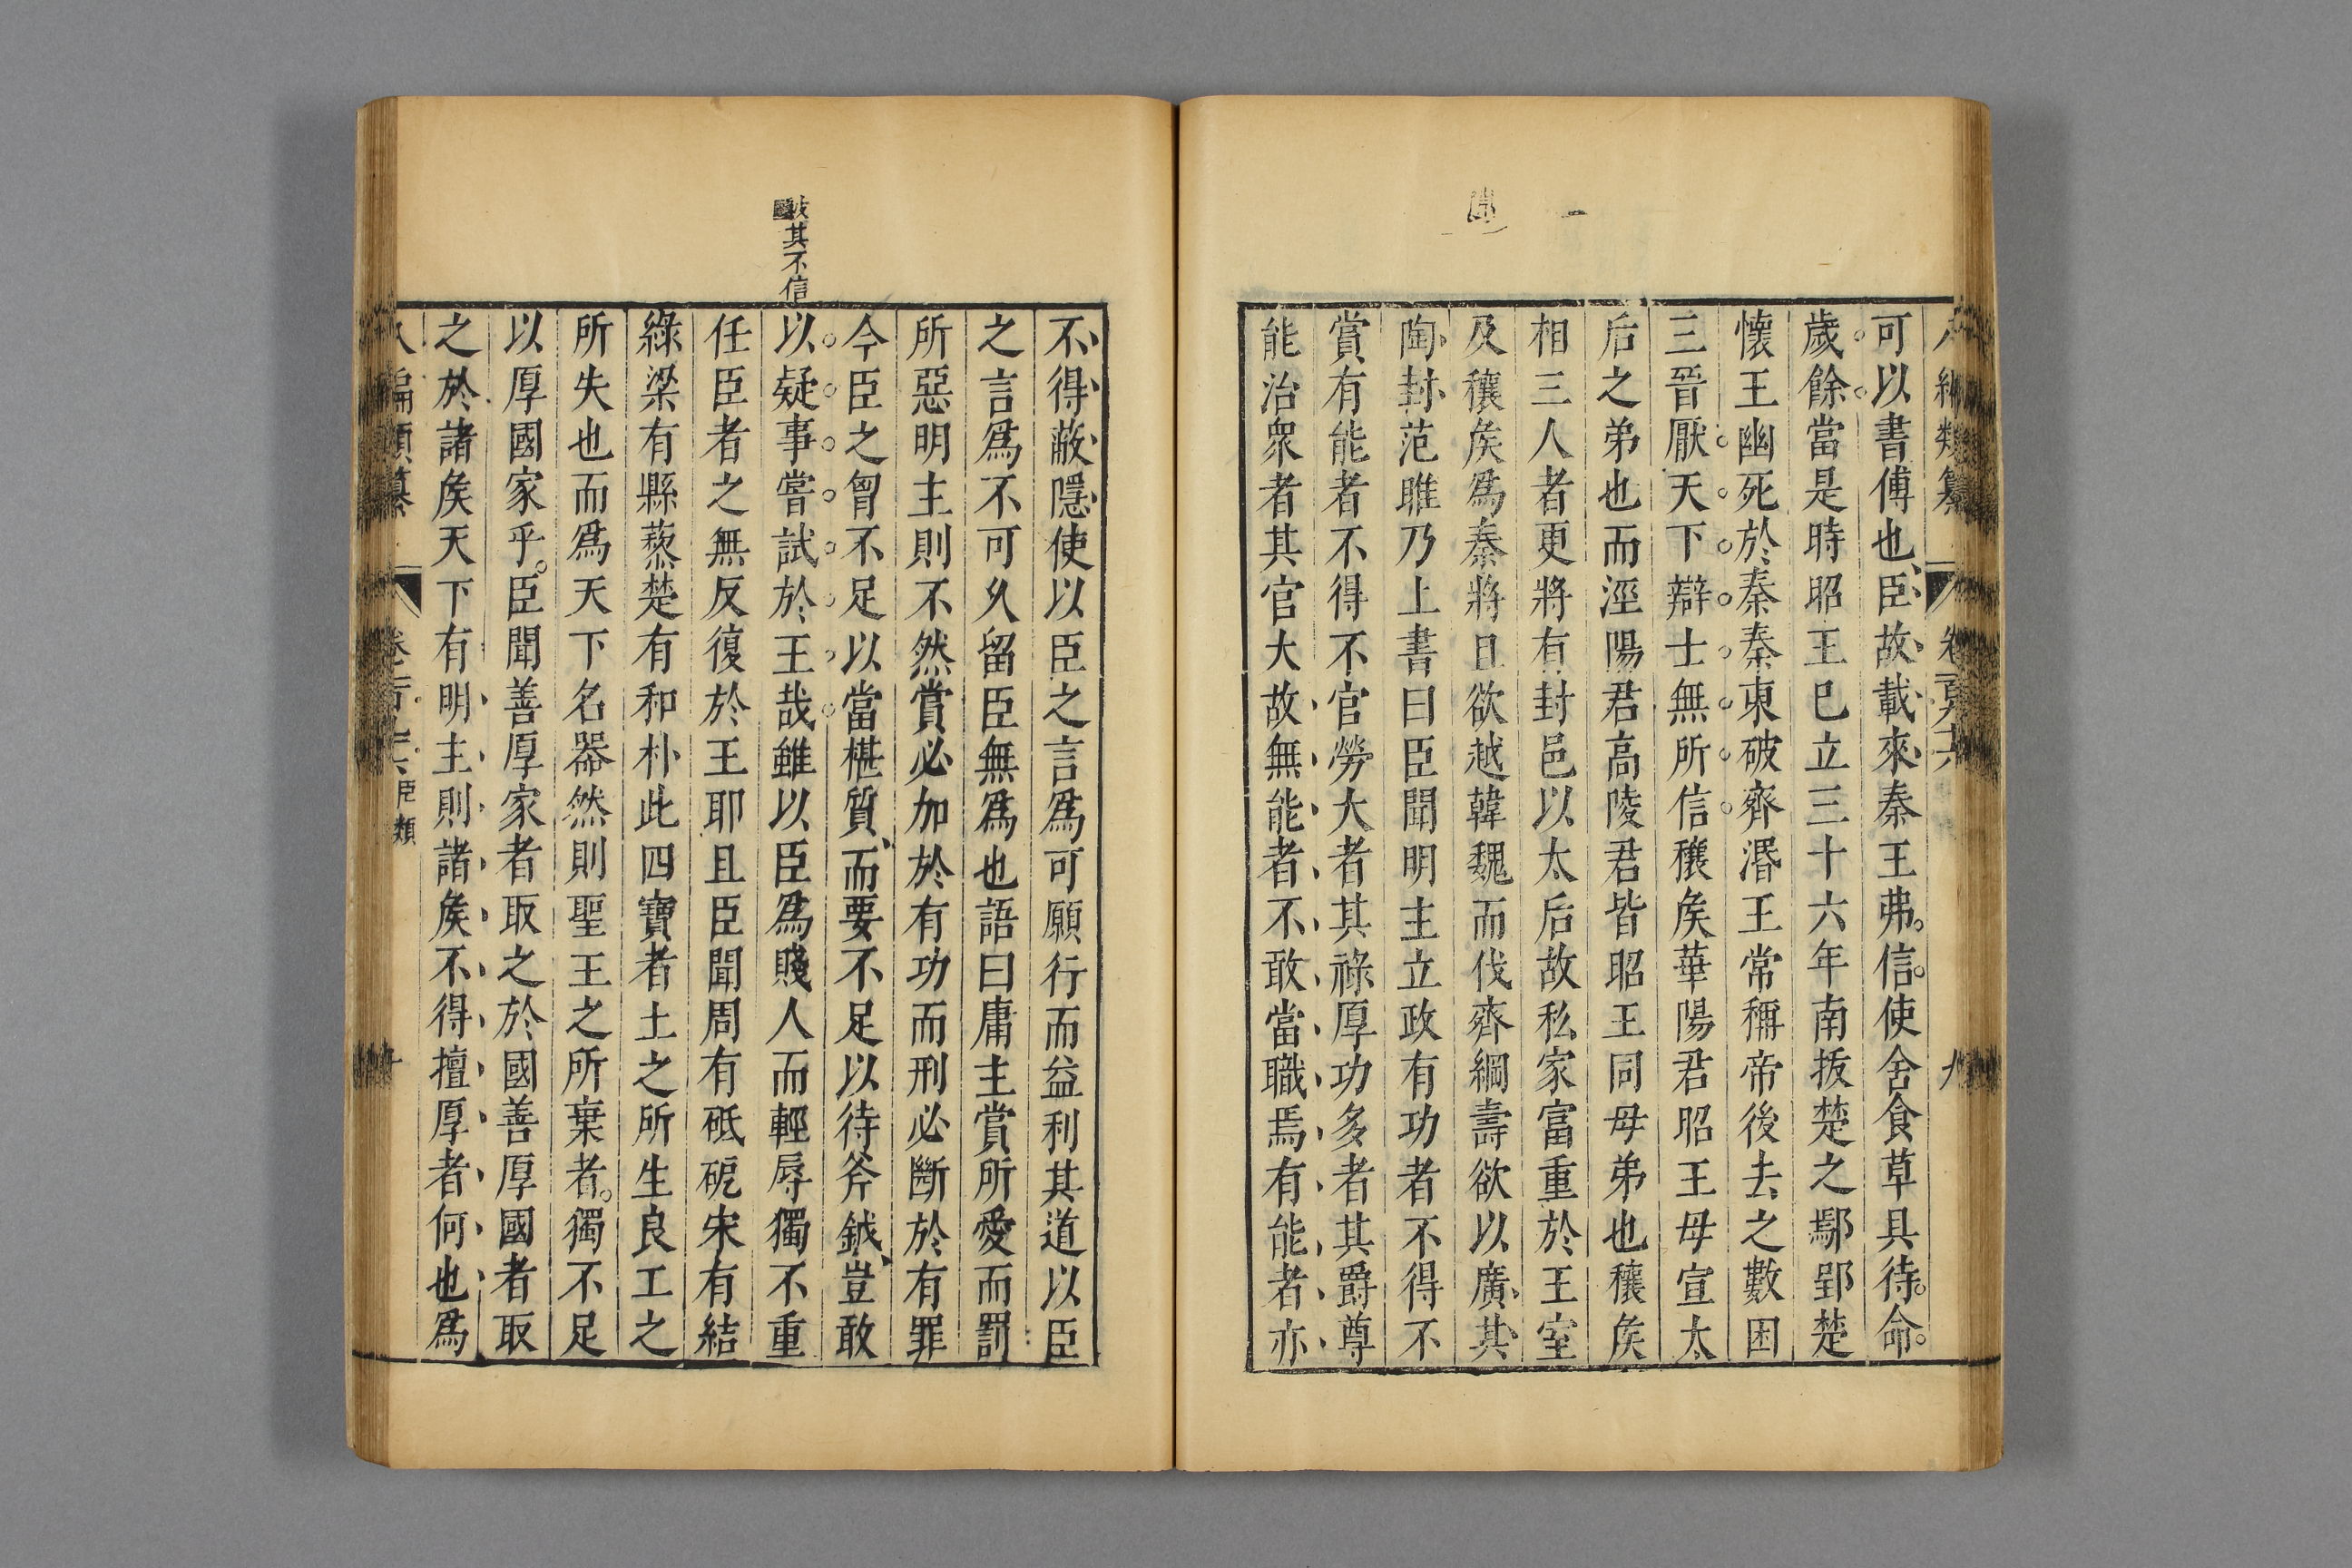 可以書傅也臣故載來秦王弗信使舍食草具待命
歲餘當是時昭王已立三十六年南拔楚之鄢郢楚
懷王幽死於秦秦東破齊湣王常稱帝後去之數困
三晉厭天下辯士無所信穰矦華陽君昭王母宣太
后之弟也而涇陽君高陵君皆昭王同母弟也穰矦
相三人者更將有封邑以太后故私家富重於王室
及穰矦爲秦將且欲越韓魏而伐齊綱壽欲以廣其
陶封范雎乃上書曰臣聞明主立政有功者不得不
賞有能者不得不官勞大者其祿厚功多者其爵尊
能治衆者其官大故無能者不敢當職焉有能者亦
不得蔽隱使以臣之言爲可願行而益利其道以臣
之言爲不可久留臣無爲也語曰庸主賞所愛而罰
所惡明主則不然賞必加於有功而刑必斷於有罪
今臣之曾不足以當椹質而要不足以待斧鉞豈敢
其不信
以疑事嘗試於王哉雖以臣爲賤人而輕辱獨不重
任臣者之無反復於王耶且臣聞周有砥砨宋有結
綠梁有縣藜楚有和朴此四寶者土之所生良工之
所失也而爲天下名器然則聖王之所棄者獨不足
以厚國家乎臣聞善厚家者取之於國善厚國者取
之於諸矦天下有明主則諸矦不得擅厚者何也爲